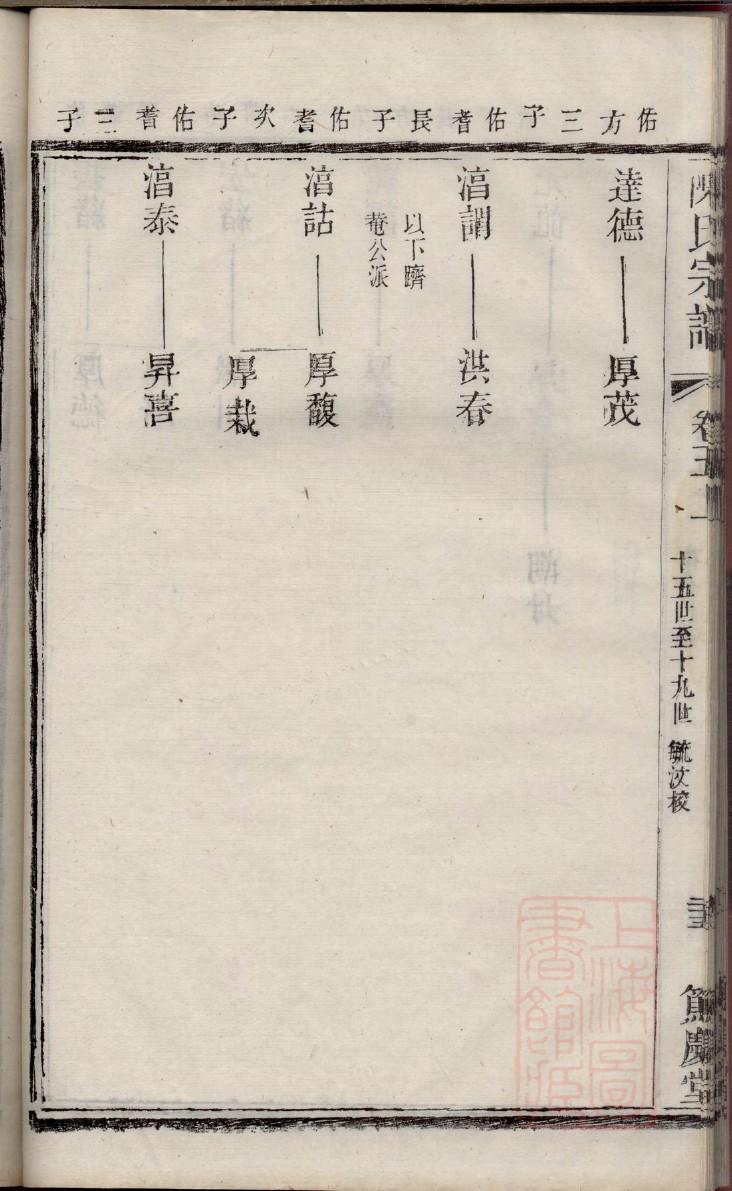 陳氏宗譜
卷五上
十五世至十九世 毓汶校
篤慶堂
佑方三子
達德 厚茂
佑耆長子
湻謂 洪春
以下躋
菴公派
佑耆次子
湻詁 厚馥
厚栽
佑耆三子
湻泰 昇喜
上海圖
書館藏